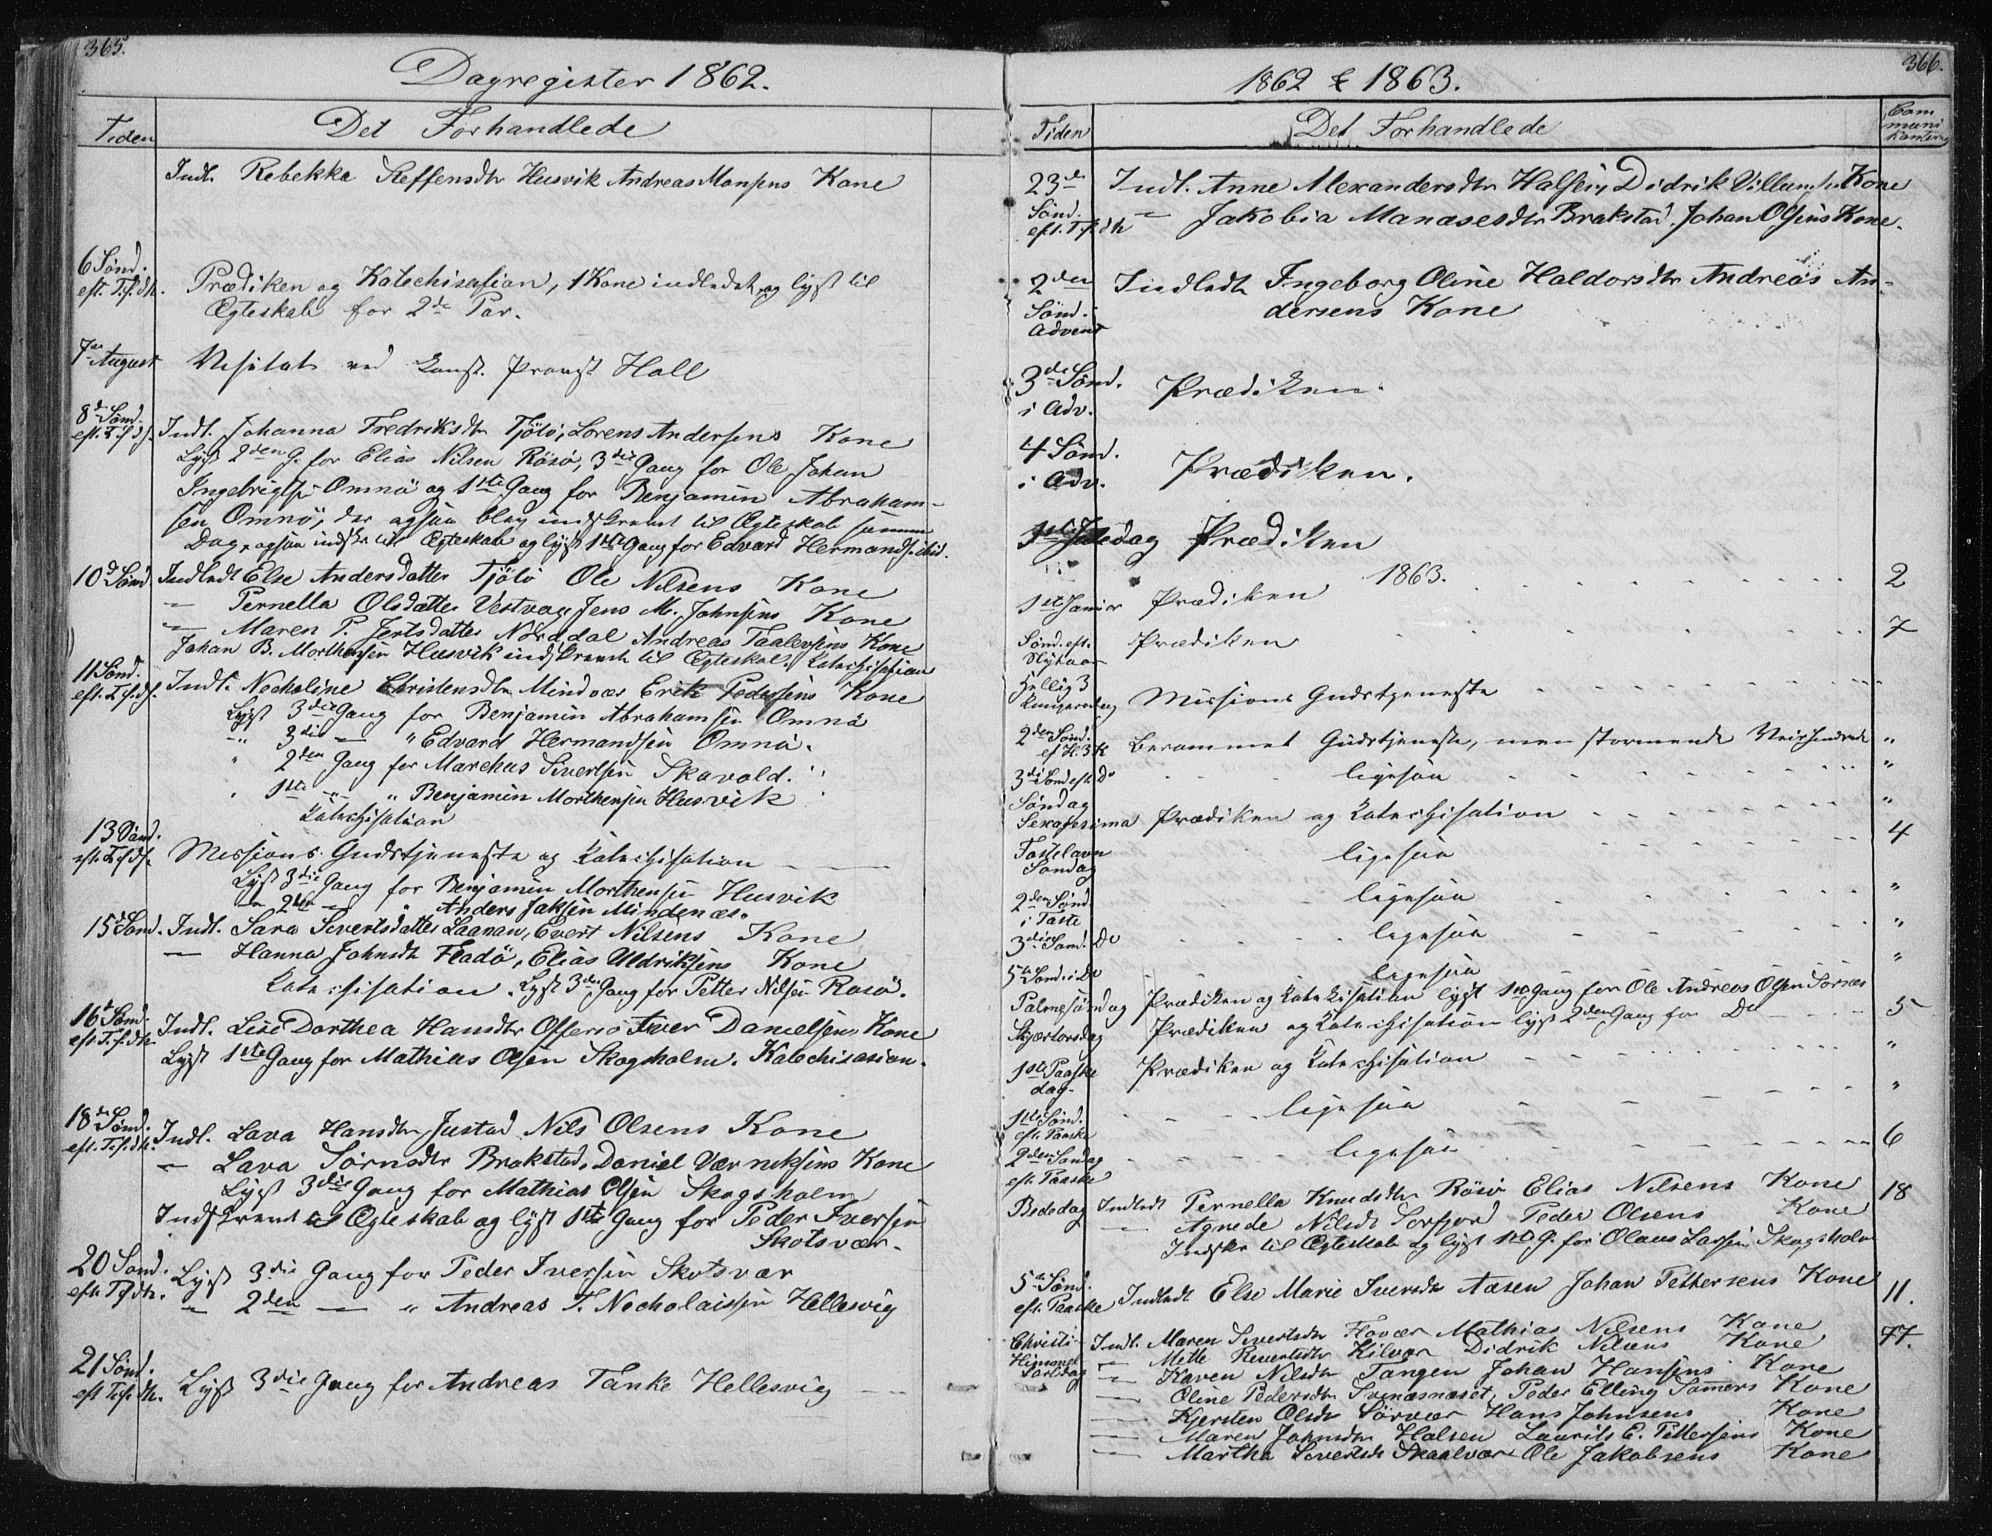 365.
Dagregister 1862.
Tiden
Det Forhandlede
Indl. Rebekka Steffensdtr Husvik Andreas Monsens Kone
6 Sønd. eft. Tr.f.dh.
Prædiken og Katechisasion, 1 Kone indledet, og lyst til
Ægteskab for 2de Par.
7de August
Visitats ved Const. Provst Hall
8d Sønd. eft. T.f.d.h.
Indl. Johanna Fredriksdtr Tjötö, Lorens Andersens Kone
Lyst 2den G. for Elias Nilsen Rösö, 3die Gang for Ole Johan
Ingebrigtsen Omnö og 1ste Gang for Benjamin Abraham-
sen Omnö, der ogsaa blev indskrevet til Ægteskab samme
Dag, ogsaa indskr. til Ægteskab og lyst 1ste Gang for Edvard Hermands.
10d Sønd.
Indledt Else Andersdatter Tjötö Ole Nilsens Kone
— Pernella Olsdatter Vestvog, Jens M. Johnsens Kone
— Maren P. Jentsdatter Norddal Andreas Kone
Johan B. Morthensen Husvik indskrevet til Ægteskab. Katechisation
11 Sønd. eft. T.f.d.h.
Indl. Necholine Christensdtr Mindvær Erik Pedersens Kone
Lyst 3die Gang for Benjamin Abrahamsen Omnö
— " 3die — " Edvard Hermandsen Omnö.
" 2den Gang for Marchus Sivertsen Skavold.
" 1ste — " Benjamin Morthensen Husvik
Katechisation
13 Sønd. eft. T.f.d.h.
Missions Gudstjeneste og Katechisation
Lyst 3die Gang for Benjamin Morthensen Husvik
— 2den — " Anders Jaksen Mindenæs.
15d Sønd.
Indl. Sara Sivertsdatter Laanan, Evert Nilsens Kone
— Hanna Johnsdt Fladö, Elias Uldriksens Kone
Katechisation. Lyst 3die Gang for Petter Nilsen Rosö.
16d Sønd. eft. T.f.dh.
Indl. Lise Dorthea Hansdtr Offersö Iver Danielsens Kone
Lyst 1ste Gang for Mathias Olsen Skogsholm. Katechisasion.
18de Sønd. eft. Tr.f.dh.
Indl. Lava Hansdtr Justad Nils Olsens Kone
— Lava Sørnsdtr Brakstad, Daniel Kone
Lyst 3die Gang for Mathias Olsen Skogsholm
Indskrevet til Ægteskab og lyst 1ste Gang for Peder Iversen
Skotsvær.
20 Sønd. eft. T.f.dh.
Lyst 3die Gang for Peder Iversen Skotsvær
— 2den — " Andreas T. Necholaissen Hellesvig
21 Sønd. eft. Tr.f.dh.
Lyst 3die Gang for Andreas Tanke Hellesvig
366.
1862 & 1863.
Tiden
Det Forhandlede
Communikanterne
23de Sønd. eft. T.f.dh
Indl. Anne Alexandersdtr Halsen, Didrik Kone
— Jakobia Manasesdtr Brakstad, Johan Olsens Kone.
2den Sønd. i Advent
Indledt Ingeborg Oline Haldorsdtr Andreas An-
dersens Kone
3de Sønd. i Adv.
Prædiken.
4 Sønd. i Adv.
Prædiken.
1ste Juledag
Prædiken
1863.
1ste Januar
Prædiken 2
Sønd. eft. Nytaar
Prædiken 7
Hellig 3 Kongersdag
Missions Gudstjeneste
2den Sønd. ef H. 3 K
Berammet Gudstjeneste, men stormende Veir hindrede "
3die Sønd eft. do
ligesaa "
Søndag Sexagesima
Prædiken og Katechisation "
Fastelavn Søndag
ligesaa 4
2den Sønd i Faste
ligesaa "
3die Sønd. Do
ligesaa "
5te Sønd. i Do
ligesaa "
Palmesøndag
Prædiken og Katechisation lyst 1ste Gang for Ole Andreas Olsen Sørnæs
Skjærtorsdag
Prædiken og Katechisation lyst 2den Gang for Do 5
1ste Paaske dag.
Prædiken og Katechisation "
1ste Sønd. eft. Paaske
ligesaa "
2den Søndag eft. Paaske
ligesaa 6
Bededag
Indledt Pernella Knudsdtr Rösö Elias Nilsens Kone 18
— Agnede Nilsdt Sorfjord Peder Olsens Kone
Indskr. til Ægteskab og lyst 1ste G. for Olaus Larsen Skogsholm
5te Sønd. eft. Paaske
Indledt Else Marie Iversdtr Aasen Johan Pettersens Kone 11.
Christi Himmelfartsdag
Indl. Maren Sivertsdtr Flovær Mathias Nilsens Kone 77.
— Mette Kilvær Didrik Nilsens Kone
— Karen Nilsdtr Tangen Johan Hansens Kone
— Oline Pedersdtr Svinesnæset, Peder Elling Kone
— Kjersten Olsdt Sörvær Hans Johnsens Kone
— Maren Johnsdtr Halsen Laurits E. Pettersens Kone
— Martha Sivertsdt Skaalvær Ole Jakobsens Kone